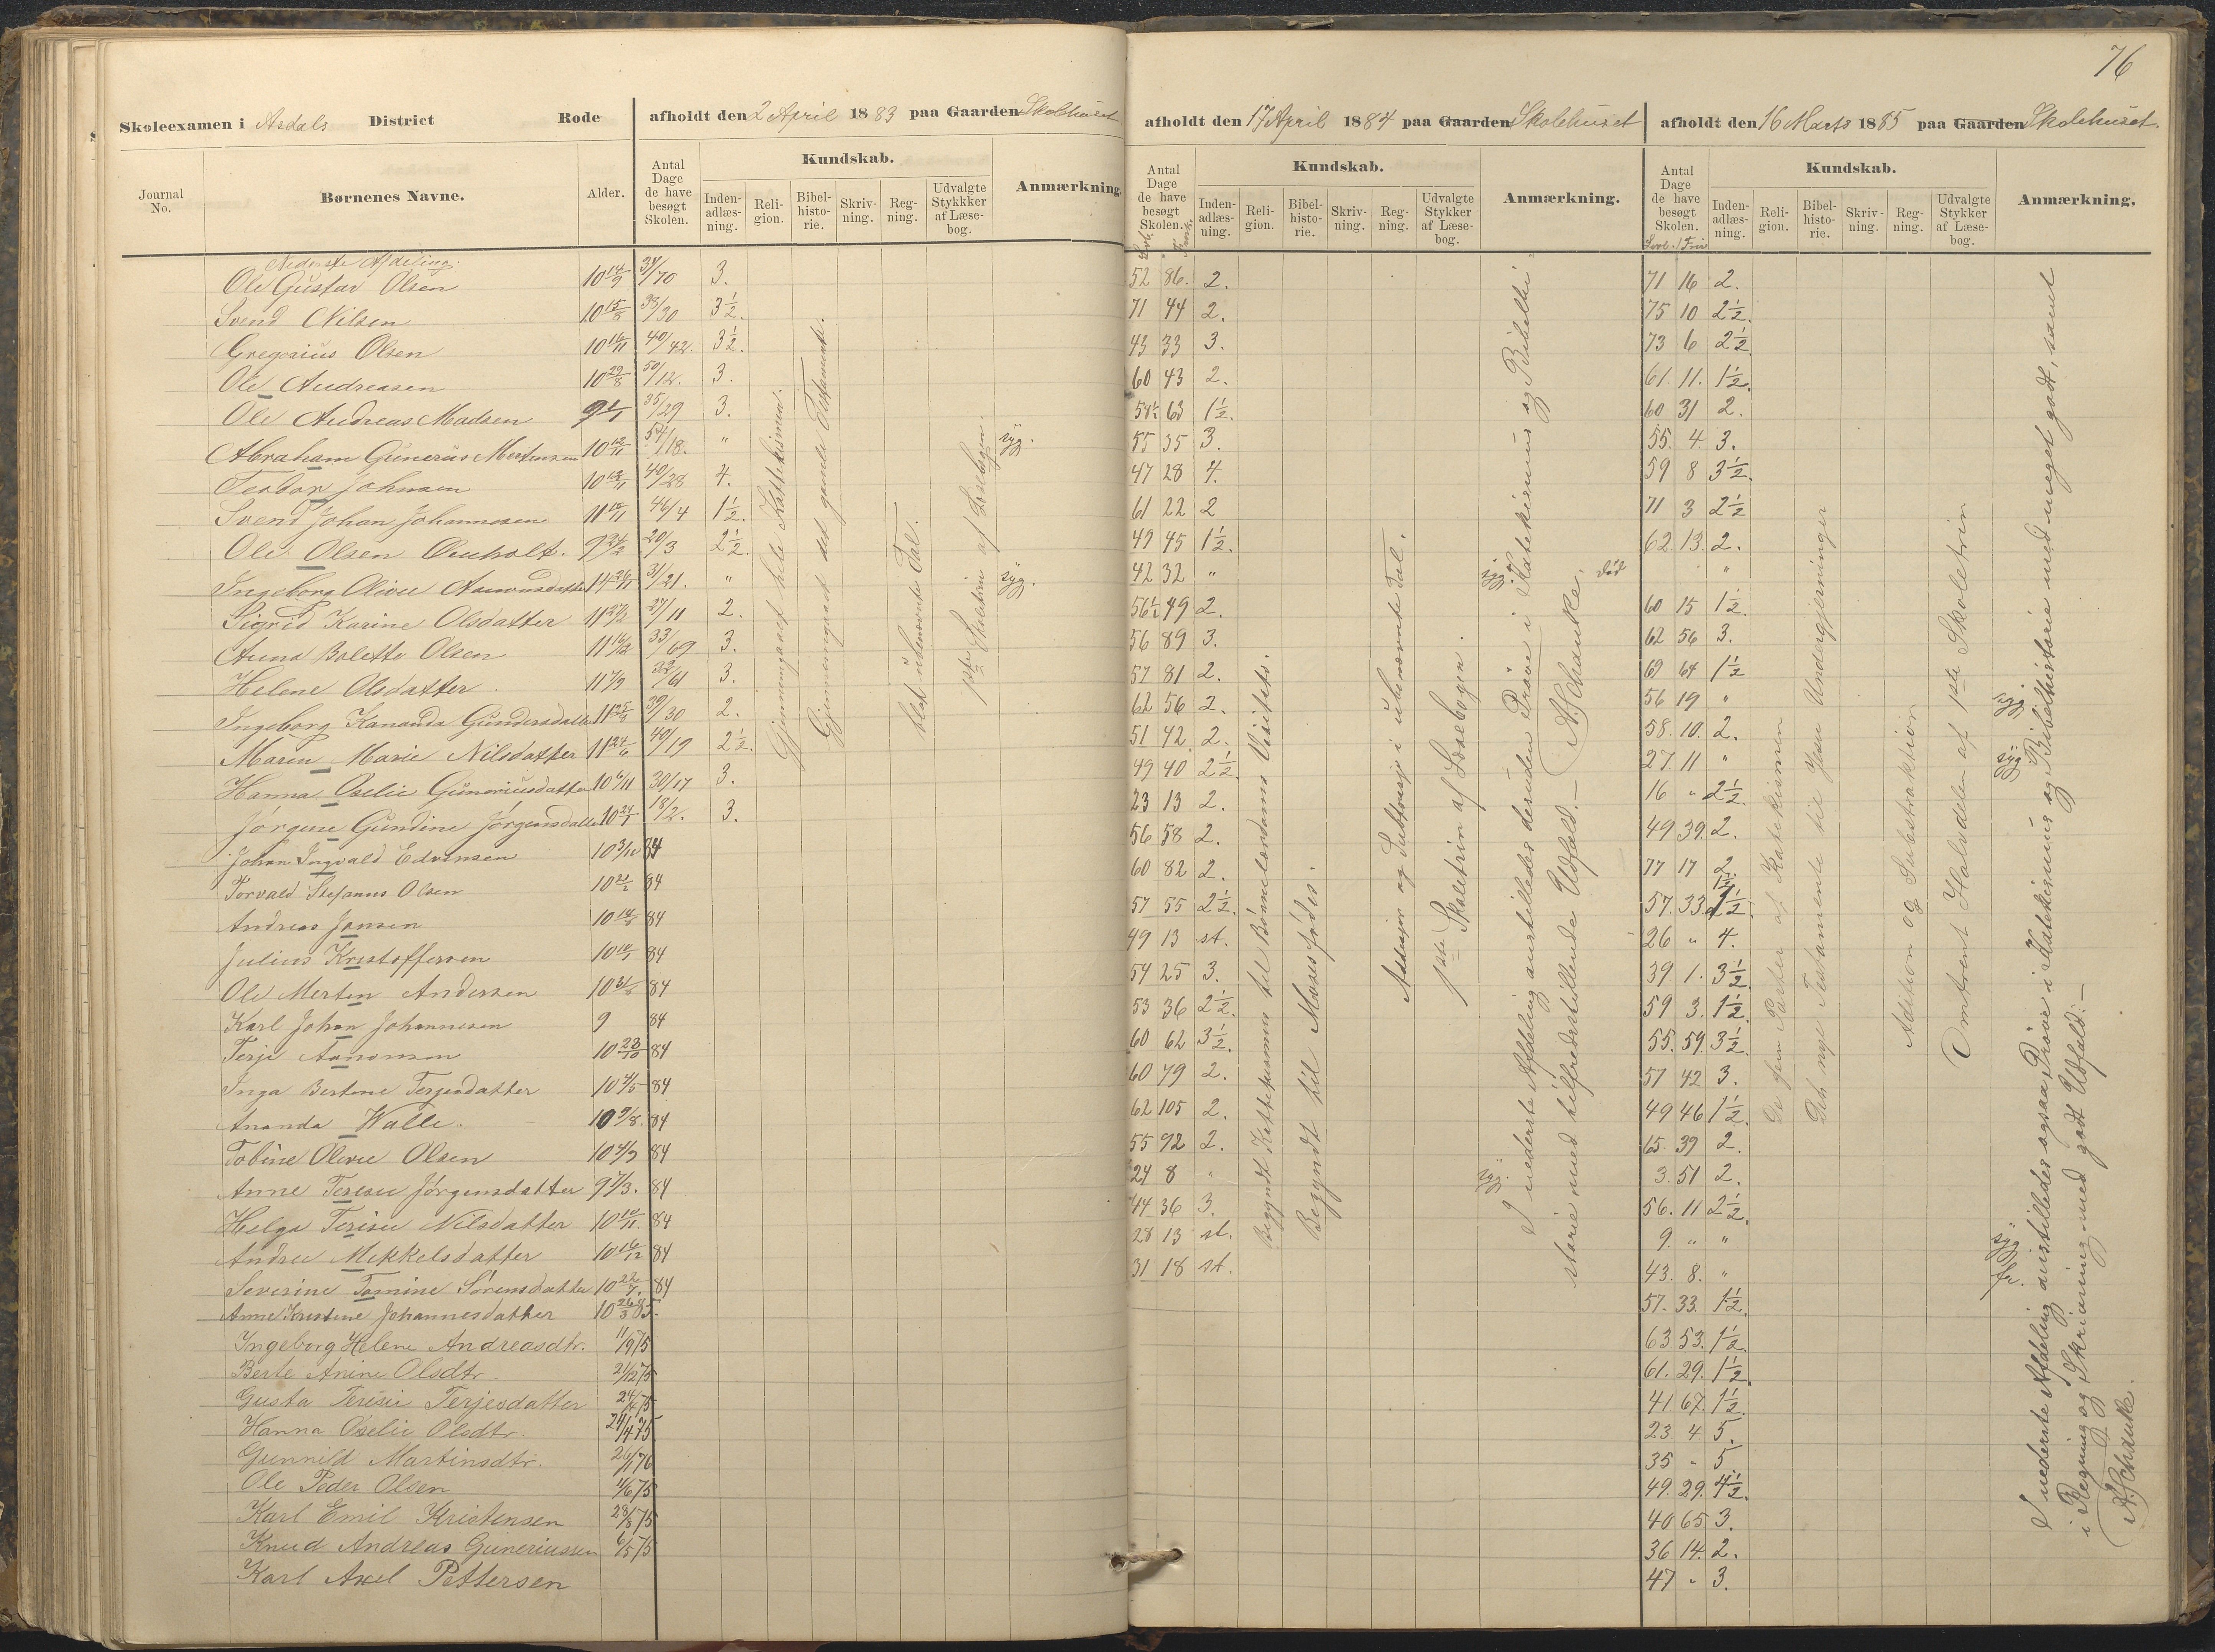 76
Skoleexamen i Asdals District Rode afholdt den 2 April 1883 paa Gaarden Skolehuset
afholdt den 17 April 1884 paa Gaarden Skolehuset
afholdt den 16 Marts 1885 paa Gaarden Skolehuset.
Journal No. Børnenes Navne. Alder. Antal Dage de have besøgt Skolen. Kundskab. Anmærkning.
Inden-adlæs-ning. Reli-gion. Bibel-histo-rie. Skriv-ning. Reg-ning. Udvalgte Stykkker af Læse-bog.
Antal Dage de have besøgt Skolen. Kundskab. Anmærkning.
Inden-adlæs-ning. Reli-gion. Bibel-histo-rie. Skriv-ning. Reg-ning. Udvalgte Stykker af Læse-bog.
Antal Dage de have besøgt Skolen. Kundskab. Anmærkning.
Inden-adlæs-ning. Reli-gion. Bibel-histo-rie. Skriv-ning. Reg-ning. Udvalgte Stykker af Læse-bog.
Nederste Afdeling.
Ole Gustav Olsen 10 14/9 34/70 3. 52 86. 2. 71 16 2.
Svend Nilsen 10 15/8 38/30 3½. 71 44 2. 75 10 2½.
Gregorius Olsen 10 16/11 40/42. 3½. 43 33 3. 73 6 2½
Ole Andreasen 10 29/8 50/12. 3. 60 43 2. 61. 11. 1½.
Ole Andreas Madsen 35/29 3. 63 1½. 60 31 2.
Abraham Gunerius Mortensen 10 12/11 54/18. " syg. 55 35 3. 55. 4. 3.
Teodor Johnsen 40/28 4. 47 28 4. 59 8 3½.
Svend Johan Johannesen 11 15/11 46/4 1½. 61 22 2 71 3 2½
Ole Olsen 9 24/2 20/3 2½. 49 45 1½. 62. 13. 2.
Ingeborg Olivie 14 26/11 31/21. " syg. 42 32 " syg. død "
Sigrid Karine Olsdatter 11 27/2 27/11 2. 56½ 49 2. 60 15 1½.
Anna Bolette Olsen 11 16/2 33/69 3. 56 89 3. 62 56 3.
Helene Olsdatter 11 7/9 32/61 3. 57 81 2. 69 64 1½
Ingeborg Kananda Gundersdatter 39/30 2. 62 56 2. 56 19 " syg
Maren Marie Nilsdatter 11 24/6 40/19 2½. 51 42 2. 58. 10. 2.
Hanna Oselie Guneriusdatter 10 6/11 30/17 3. 49 40 2½. 27. 11 " syg
Jørgine Gundine Jørgensdatter 10 24/1 18/2. 3. 23 13 2. 16 " 2½.
Johan Ingvald Edvensen 84 56 58 2. 49 39. 2.
Torvald Stefanus Olsen 10 21/2 84 60 82 2. 77 17 2.
Andreas Jansen 84 57 55 2½. 57. 33.
Julius Kristoffersen 84 49 13 st. 26 " 4.
Ole Merten Andersen 84 54 25 3. 39 1. 3½.
Karl Johan Johannesen 9 84 53 36 2½. 59 3. 1½.
Terje Aanonsen 10 23/10 84 60 62 3½. 55. 59. 3½.
Inga Bertine Terjesdatter 10 4/5 84 60 79 2. 57 42 3.
Ananda Walle. 10 9/8. 84 62 105 2. 49 46 1½.
Tobine Olivie Olsen 10 4/3 84 55 92 2. 65. 39 2.
Anne Teresie Jørgensdatter 9 7/3. 84 24 8 " syg. 3. 51 2.
Helga Terisie Nilsdatter 10 10/11. 84 44 36 3. 56. 11 2½.
Andrea Mikkelsdatter 10 16/12 84 28 13 st. 9. " " syg
Severine Tomine Sørensdatter 10 22/7. 84 31 18 st. 43. 8. " fr.
Anne Kristine Johannesdatter 10 26/3 85. 57. 33. 1½.
Ingeborg Helene Andreasdtr. 11/9 75 63 53. 1½.
Berte Anine Olsdtr. 21/12 75 61. 29. 1½.
Gusta Terisie Terjesdatter 24/4 75 41 67. 1½.
Hanna Oselie Olsdtr. 24/4 75 23. 4 5.
Gunnild Martinsdtr. 26/1 76 35 " 5
Ole Peder Olsen 4/6 75 49. 29. 4½.
Karl Emil Kristensen 28/8 75 40 65 3.
Knud Andreas Guneriussen 6/5 75 36 14. 2.
Karl Axel Pettersen 47 " 3.
Gjennemgaaet hele Katekismen.
Gjennemgaaet det gamle Testamente.
blot ubenævnte Tal.
1ste Skoletrin af Læsebogen.
Begyndt Katekismus til Børnelærdoms Visitats.
Begyndt til Moses fødsel.
Addisjon og Subtrasjon i ubenævnte Tal.
1ste Skoletrin af Læsebogen.
I nederste Afdeling anstilledes desuden Prøve i Katekismus og Bibelhi-
storie med tilfredsstillende Udfald. — A. Schanke.
De fem Parter af Katekismen
Det nye Testamente til Jesu Undergjerninger
Adition og Substraktion
Omtrent Halvdelen af 1ste Skoletrin
I nederste Afdeling anstilledes ogsaa Prøve i Katekismus og Bibelhistorie med meget godt, samt
i Regning og Skrivning med godt Udfald. —
A. Schanke.